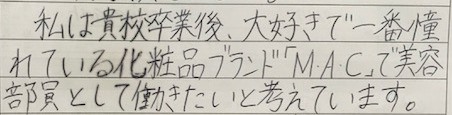 私は貴校卒業後、大好きで一番憧
れている化粧品ブランド「M·A·C」で美容
部員として働きたいと考えています。